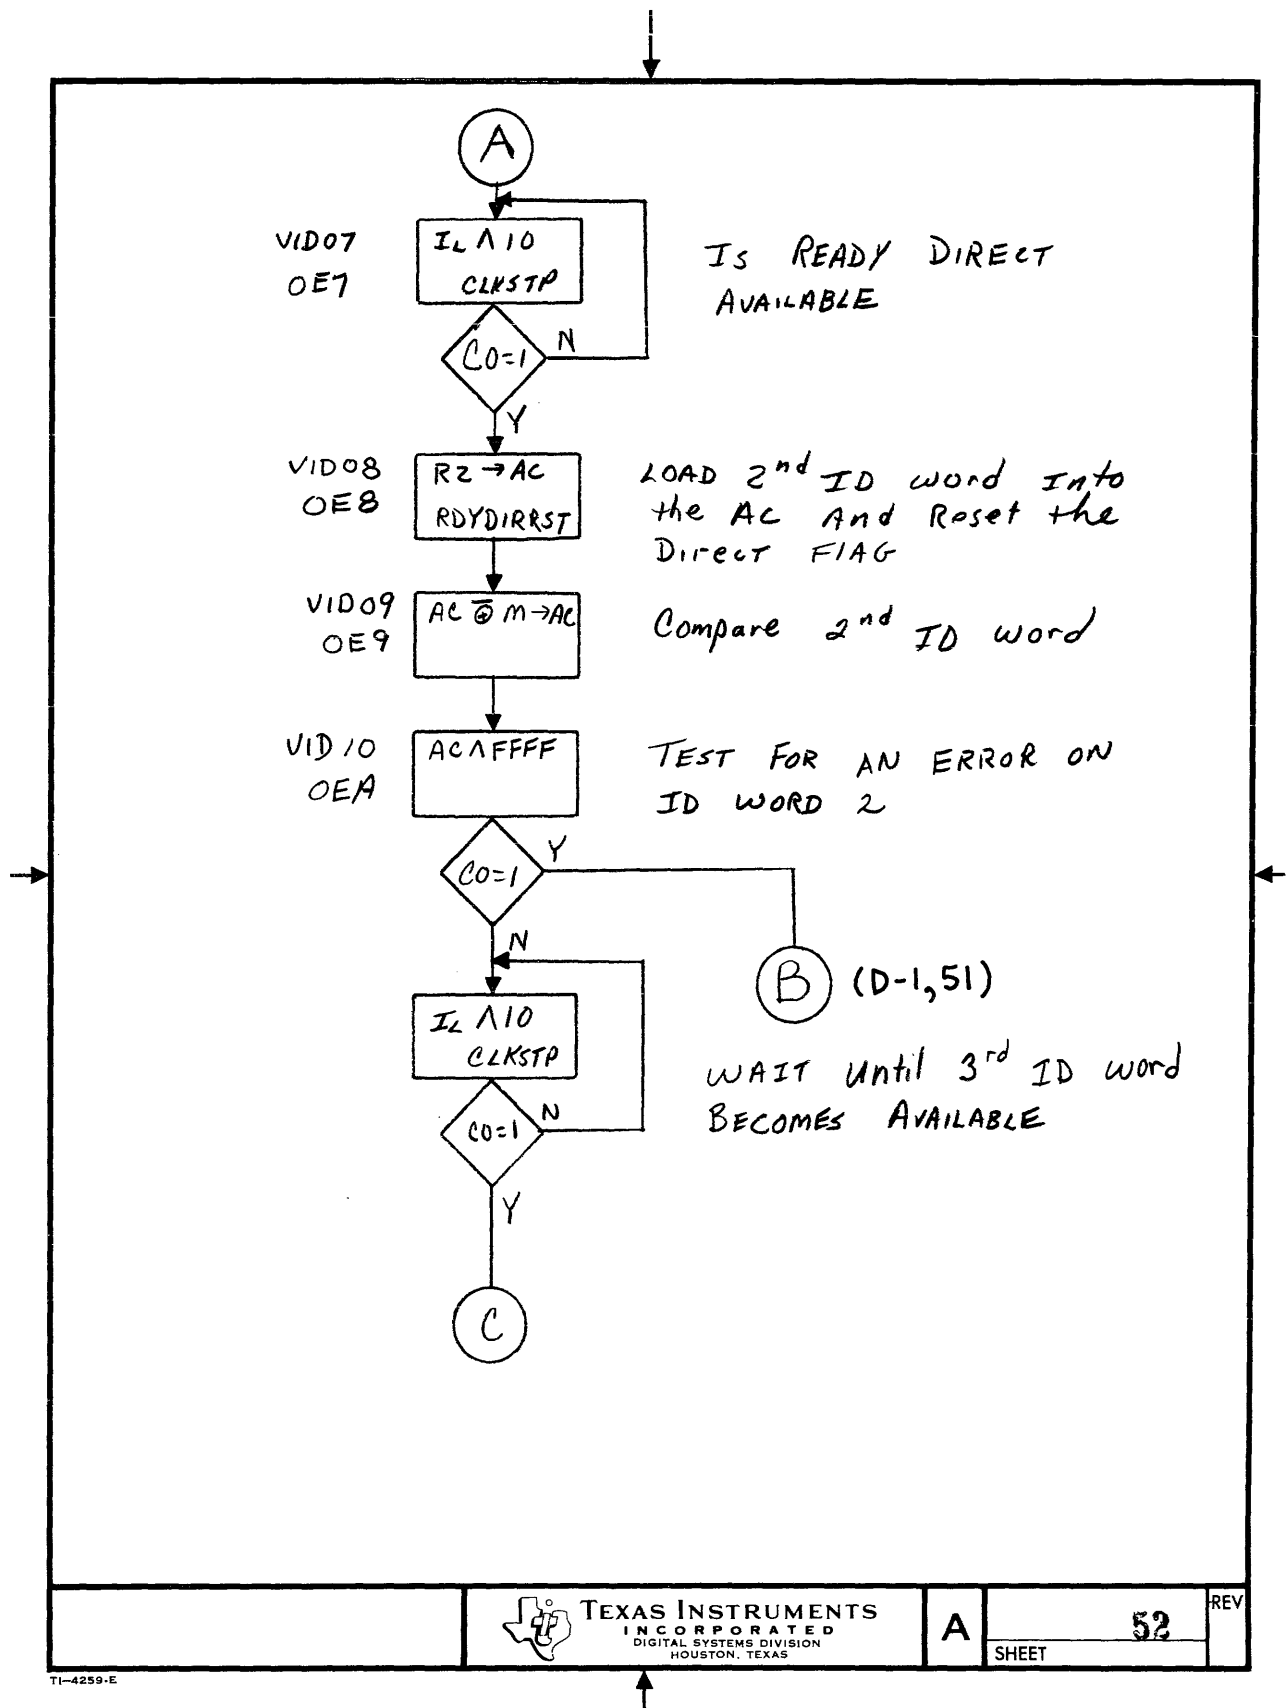 A
VID07
OE7
IL ∧ 10
CLKSTP
IS READY DIRECT
AVAILABLE
CO=1
N
Y
VID08
OE8
R2 → AC
RDYDIRRST
LOAD 2nd ID word Into
the AC And Reset the
Direct FlAG
VID09
OE9
AC ⊕̅ M → AC
Compare 2nd ID word
VID10
OEA
AC ∧ FFFF
TEST FOR AN ERROR ON
ID WORD 2
CO=1
Y
N
B
(D-1,51)
IL ∧ 10
CLKSTP
WAIT Until 3rd ID word
BECOMES AVAILABLE
CO=1
N
Y
C
TEXAS INSTRUMENTS
INCORPORATED
DIGITAL SYSTEMS DIVISION
HOUSTON, TEXAS
A
52
SHEET
REV
TI-4259-E